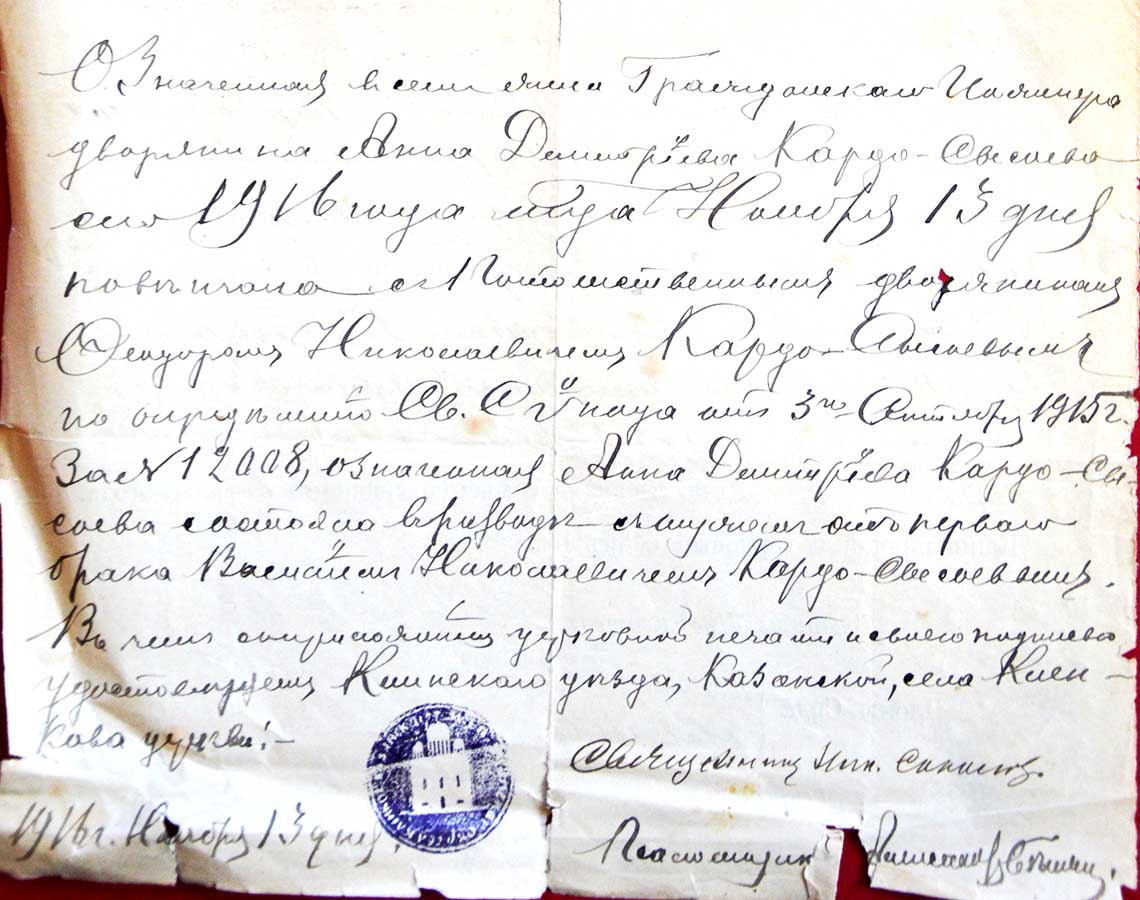 Означенная въ семъ жена Гражданскаго Инженера
дворянина Анна Димитріева Кардо-Сысоева
сего 1916 года мѣсяца Ноября 13 дня
повѣнчана съ Потомственнымъ дворяниномъ
Ѳеодоромъ Николаевичемъ Кардо-Сысоевымъ
по опредѣленію Св. Сѵнода отъ 3го Сентября 1915 г.
За № 12008, означенная Анна Димитріева Кардо-Сы-
соева состояла въ разводѣ съ мужемъ отъ перваго
брака Василіемъ Николаевичемъ Кардо-Сысоевымъ.
Въ чемъ съ церковной печати и своего подписью
удостовѣряемъ Клинскаго уѣзда, Казанской, села Клен-
кова церкви:-
Священникъ Ник.
1916 г. Ноября 13 дня.
Псаломщикъ